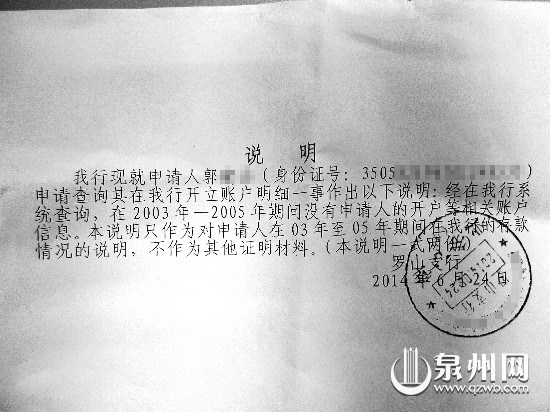 说 明
我行现就申请人郭（身份证号：3505）
申请查询其在我行开立账户明细一事作出以下说明：经在我行系
统查询，在2003年—2005年期间没有申请人的开户等相关账户
信息。本说明只作为对申请人在03年至05年期间在我行的存款
情况的说明，不作为其他证明材料。（本说明一式两份）
罗山支行
2014年6月24日
泉州网
www.qzwb.com